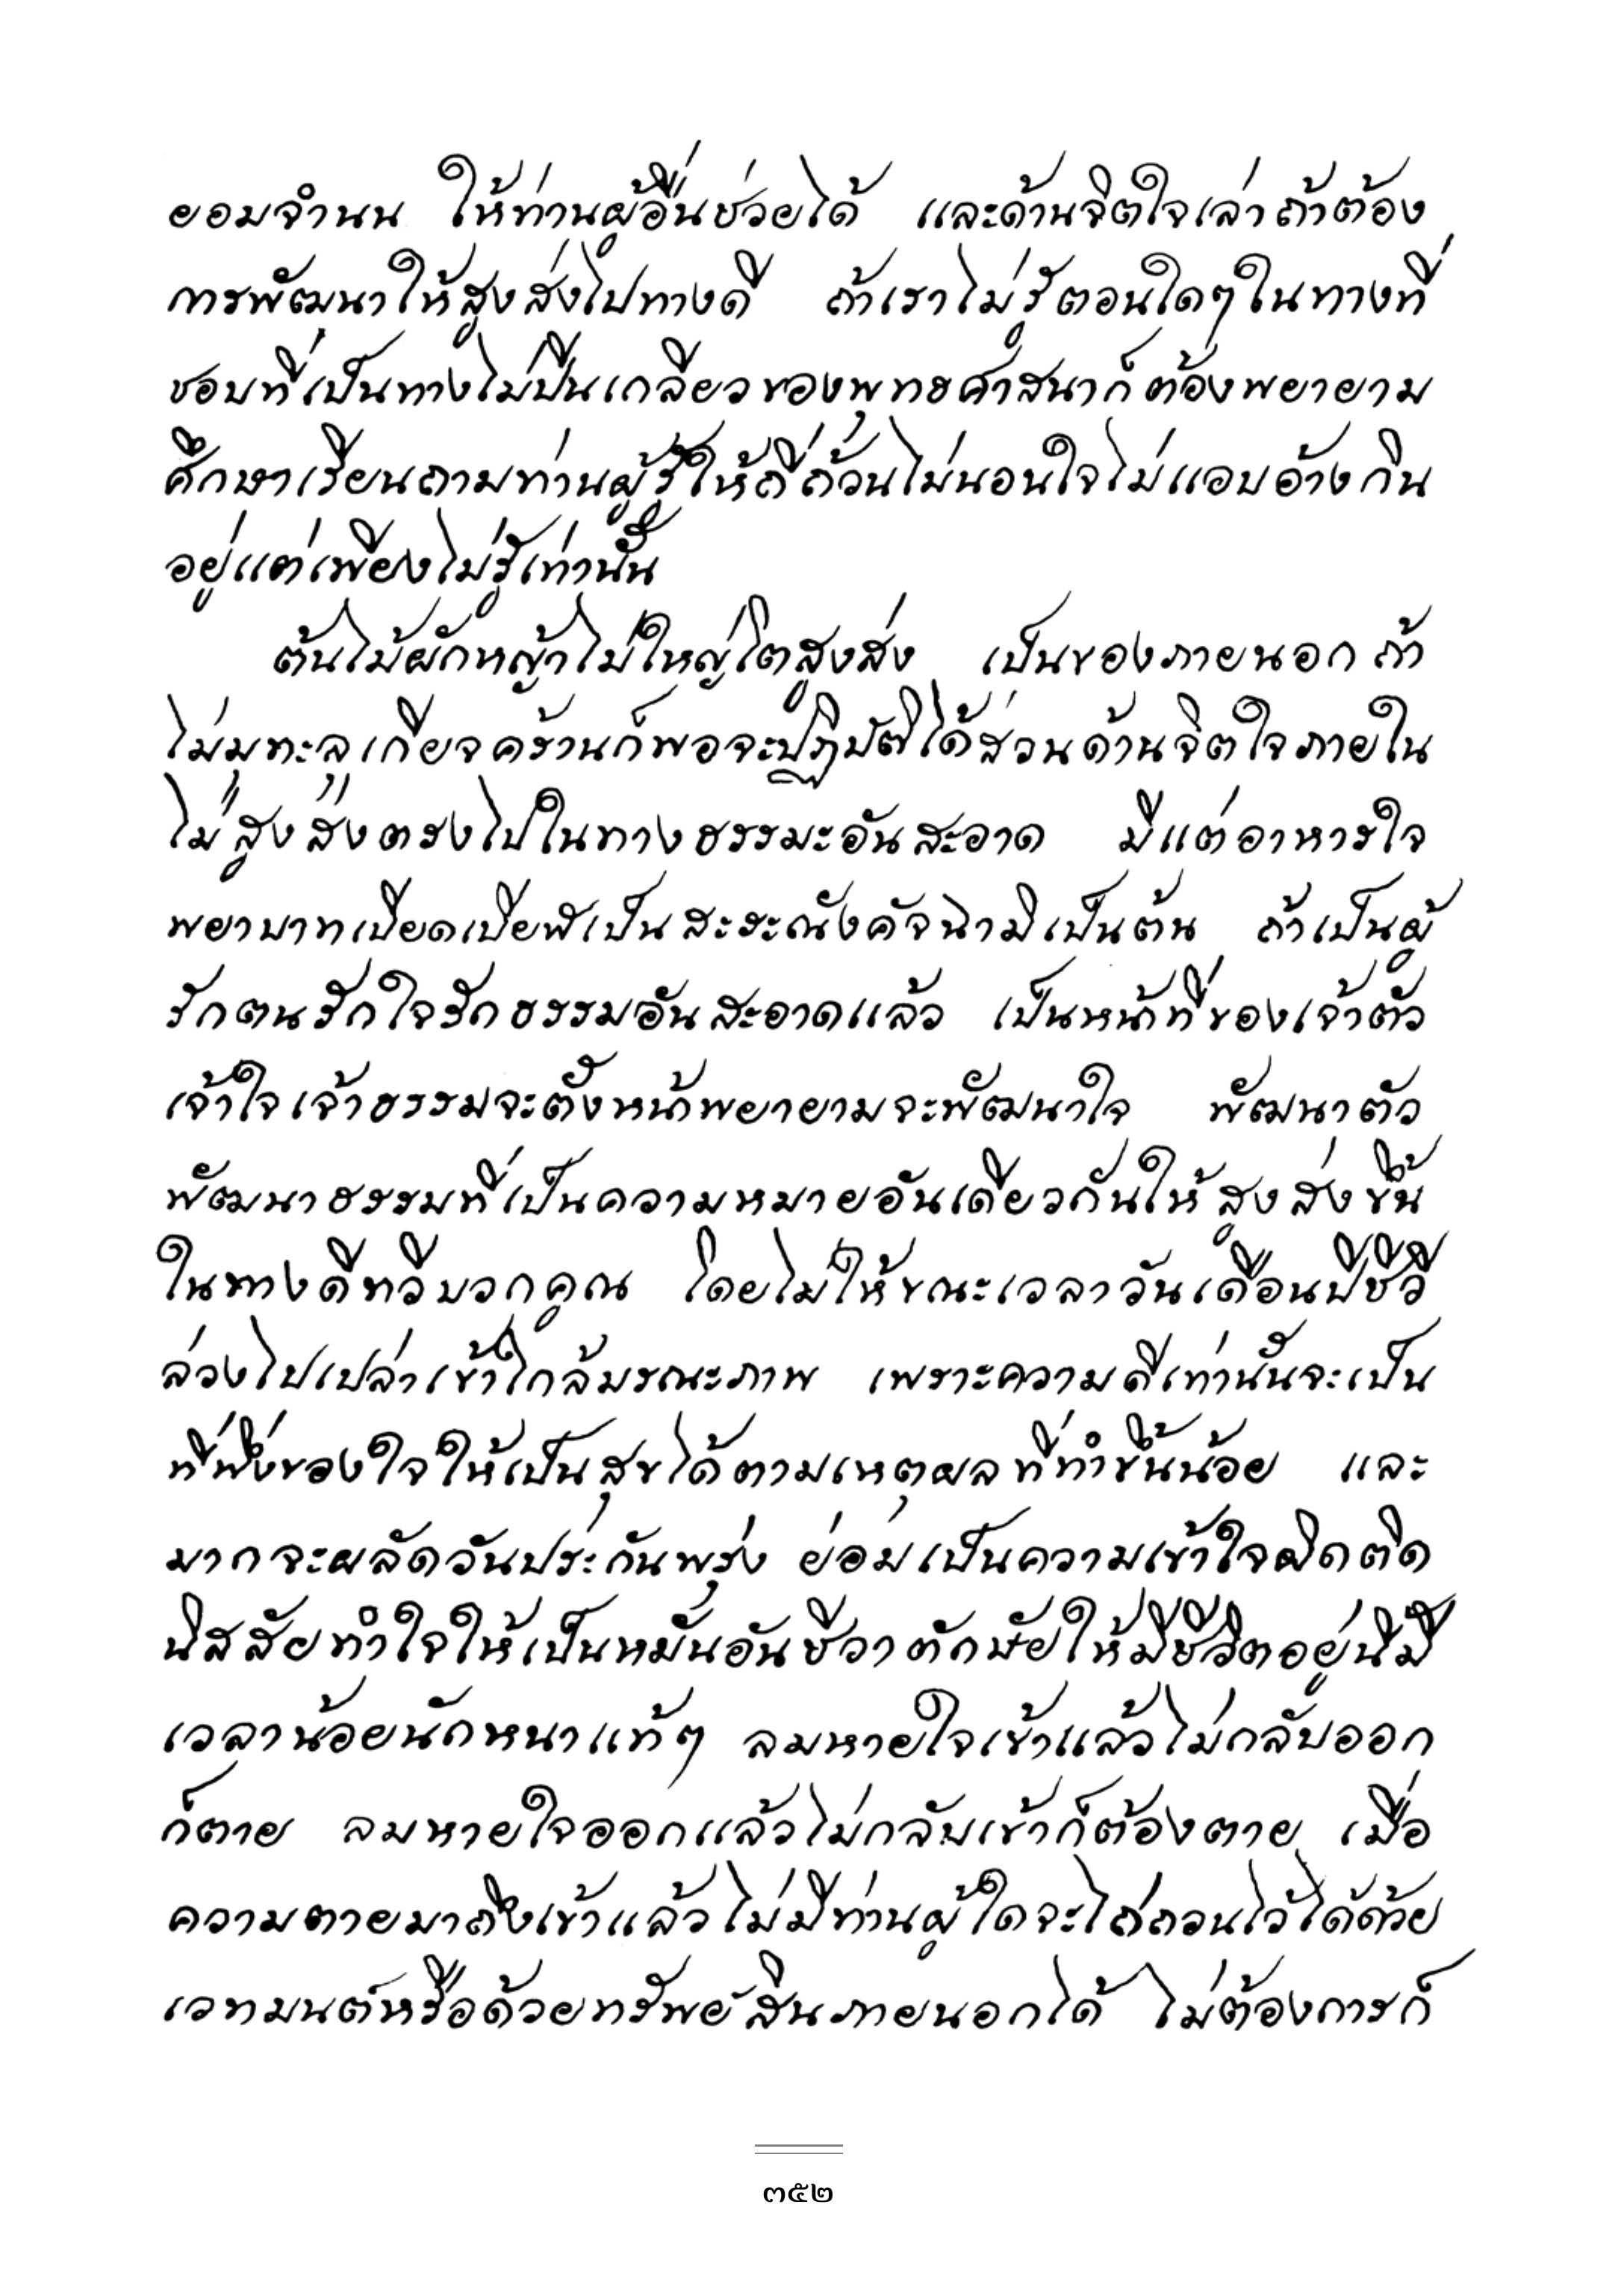 ยอมจำนน ให้ท่านผู้อื่นช่วยได้ และด้านจิตใจเล่าถ้าต้อง
การพัฒนาให้สูงส่งไปทางดี ถ้าเราไม่รู้ตอนใดๆในทางที่
ชอบที่เป็นทางไม่ปีนเกลียวของพุทธศาสนาก็ต้องพยายาม
ศึกษาเรียนถามท่านผู้รู้ให้ถี่ถ้วนไม่นอนใจไม่แอบอ้างกิน
อยู่แต่เพียงไม่รู้เท่านั้น
ต้นไม้ผักหญ้าไม่ใหญ่โตสูงส่ง เป็นของภายนอก ถ้า
ไม่มุทะลุเกียจคร้านก็พอจะปฏิบัติได้ส่วนด้านจิตใจภายใน
ไม่สูงส่งตรงไปในทางธรรมะอันสะอาด มีแต่อาหารใจ
พยาบาทเบียดเบียฬเป็นสะระณังคัจฉามิเป็นต้น ถ้าเป็นผู้
รักตนรักใจรักธรรมอันสะอาดแล้ว เป็นหน้าที่ของเจ้าตัว
เจ้าใจเจ้าธรรมจะตั้งหน้าพยายามจะพัฒนาใจ พัฒนาตัว
พัฒนาธรรมที่เป็นความหมายอันเดียวกันให้สูงส่งขึ้น
ในทางดีทวีบวกคูณ โดยไม่ให้ขณะเวลาวันเดือนปีชีวี
ล่วงไปเปล่าเข้าใกล้มรณะภาพ เพราะความดีเท่านั้นจะเป็น
ที่พึ่งของใจให้เป็นสุขได้ตามเหตุผลที่ทำขึ้นน้อย และ
มากจะผลัดวันประกันพรุ่ง ย่อมเป็นความเข้าใจผิดติด
นิสสัยทำใจให้เป็นหมันอันชีวาตักษัยให้มีชีวิตอยู่นี้มี
เวลาน้อยนักหนาแท้ๆ ลมหายใจเข้าแล้วไม่กลับออก
ก็ตาย ลมหายใจออกแล้วไม่กลับเข้าก็ต้องตาย เมื่อ
ความตายมาถึงเข้าแล้วไม่มีท่านผู้ใดจะไถ่ถอนไว้ได้ด้วย
เวทมนต์หรือด้วยทรัพย์สินภายนอกได้ ไม่ต้องการก็
๓๕๒